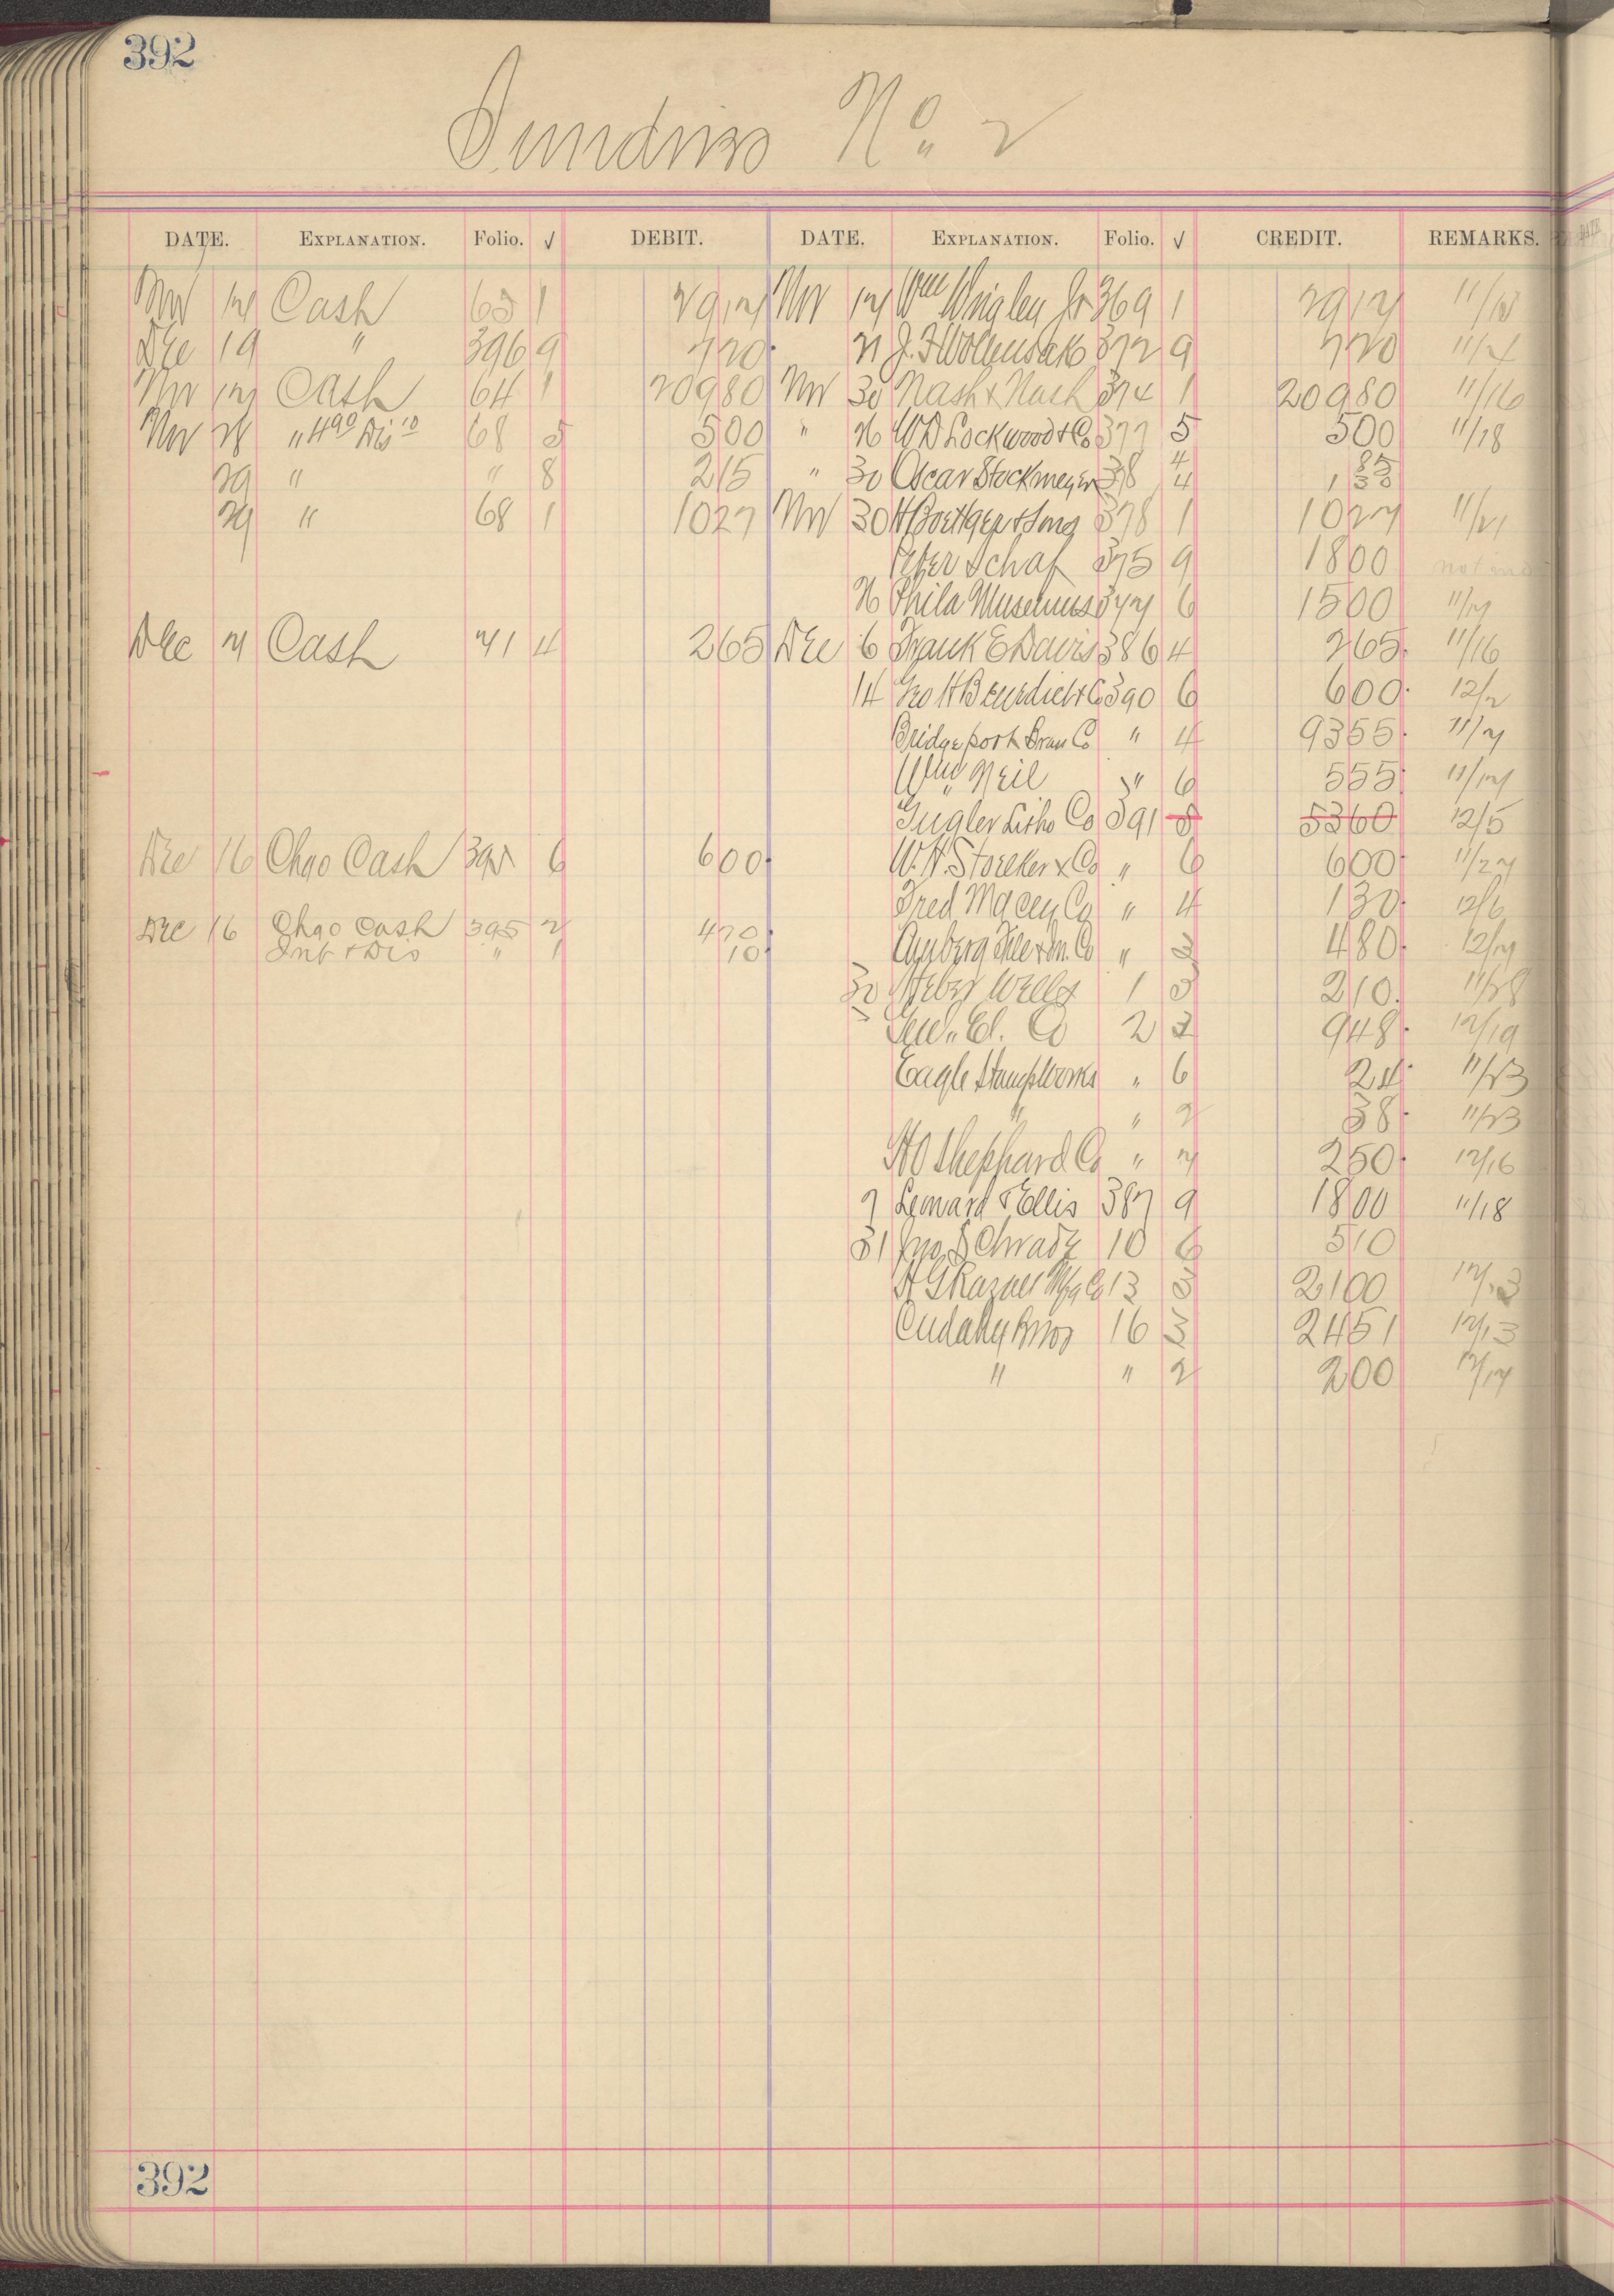 392
Sundries No. 2
DATE. EXPLANATION. Folio. √ DEBIT. DATE. EXPLANATION. Folio. √ CREDIT. REMARKS.
Nov 17 Cash 65 1 2917 Nov 17 Wm Wrigley Jr 369 1 2917
Dec 19 " 396 9 720 21 372 9 720
Nov 17 Cash 64 1 20980 Nov 30 Nash & Nash 374 1 20980 11/16
Nov 28 " 490 Dis 10 68 5 500 " 26 W D Lockwood & Co 377 5 500 11/18
29 " " 8 215 " 30 Oscar Stockmeyer 4
29 " 68 1 1027 Nov 30 H Boettger & Sons 378 1 1027 11/21
Peter Schaf 375 9 1800
26 Phila Museums 6 1500 11/17
Dec 7 Cash 71 4 265 Dec 6 Frank E Davis 386 4 265 11/16
14 Geo H Benedict & Co 390 6 600 12/2
Bridgeport Brass Co " 4 9355 11/7
Wm Neil " 6 555 11/17
Gugler Litho Co 391 5360 12/5
Dec 16 Chgo Cash 395 6 600 W. H. Stoelker & Co " 6 600 11/27
Fred Macey Co " 4 130 12/6
Dec 16 Chgo Cash 395 2 470 Amberg File & In. Co " 480 12/7
Int & Dis " 1 10
30 Heber Wells 1 3 210 11/28
Gen. El. Co 2 2 948 12/19
Eagle Stamp Works " 6 24 11/23
" " 2 38 11/23
H O Shephard Co " 7 250 12/16
7 Leonard & Ellis 387 9 1800 11/18
31 Jno Schrady 10 6 510
Mfg Co 13 3 2100
Cudahy Bros 16 3 2451 12/13
" " 2 200 12/17
392